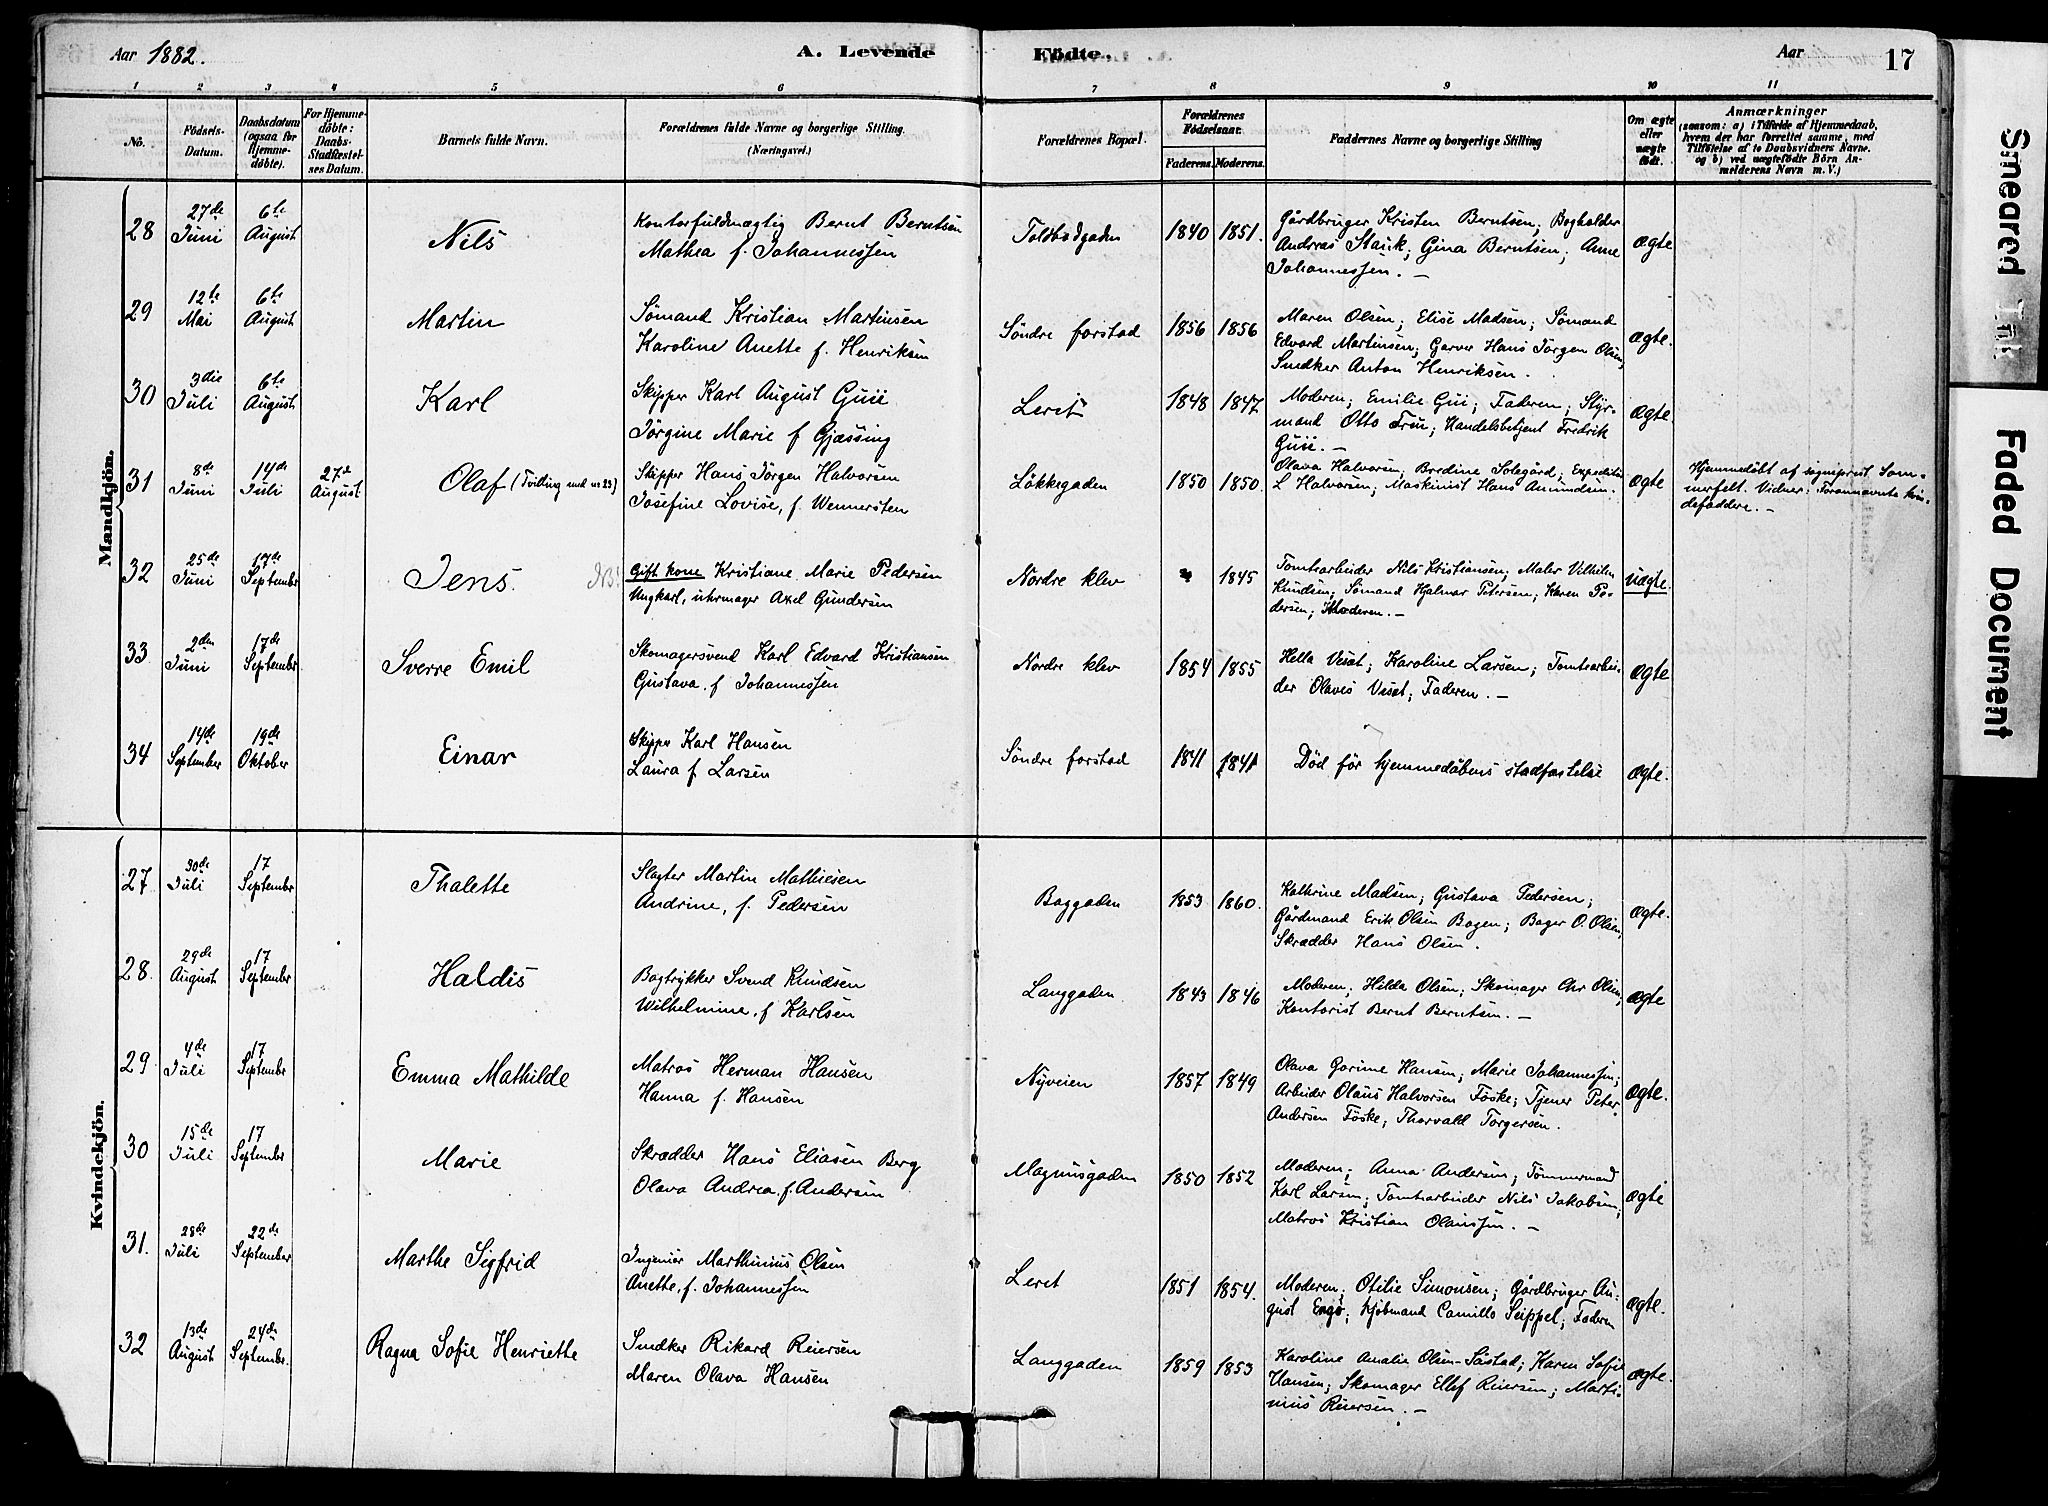 Aar 1882.
A. Levende
Födte.
Aar
17
1 2 3 4 5 6 7 8 9 10 11
No.
Födsels-
Datum.
Daabsdatum
(ogsaa for
Hjemme-
döbte).
For Hjemme-
döbte:
Daabs-
Stadfæstel-
ses Datum.
Barnets fulde Navn.
Forældrenes fulde Navne og borgerlige Stilling.
(Næringsvei.)
Forældrenes Bopæl.
Forældrenes
Födselsaar.
Faderens. Moderens.
Faddernes Navne og borgerlige Stilling
Om ægte
eller
uægte
födt.
Anmærkninger
(saasom: a) i Tilfælde af Hjemmedaab,
hvem der har forrettet samme, med
Tilföielse af to Daabsvidners Navne.
og b) ved uægtefödte Börn An-
melderens Navn m. V.)
Mandkjön.
28
27de
Juni
6te
August
Nils
Kontorfuldmægtig Bernt Berntsen
Mathea f. Johannessen
Toldbodgaden
1840 1851.
Gårdbruger Kristen Berntsen; Bogholder
Andreas Staick; Gina Berntsen; Anne
Johannessen. —
ægte
29
12te
Mai
6te
August
Martin
Sømand Kristian Martinsen
Karoline Anette f. Henriksen
Søndre forstad
1856 1856
Maren Olsen; Elise Madsen; Sømand
Edvard Martinsen; Garver Hans Jörgen Olsen,
Snedker Anton Henriksen.
ægte.
30
3die
Juli
6te
August
Karl
Skipper Karl August Guii
Jörgine Marie f Gjæssing
Leret
1848 1847
Moderen; Emilie Gui; Faderen; Styr-
mand Otto Freu; Handelsbetjent Fredrik
Guii. —
ægte.
31
8de
Juni
14de
Juli
27d
August
Olaf (Tvilling med nr 23)
Skipper Hans Jørgen Halvorsen
Josefine Lovise, f. Wennersten
Løkkegaden
1850 1850.
Olava Halvorsen; Bredine Solegård; Expeditör
L Halvorsen; Maskinist Hans Amundsen.
ægte
Hjemmedøbt af sogneprest Som-
merfelt. Vidner: Forannævnte kvin-
defaddere. —
32
25de
Juni
17de
September
Jens.
NB!
Gift kone Kristiane Marie Pedersen
Ungkarl, uhrmager Axel Gundersen
Nordre klev
1845
Tomtearbeider Nils Kristiansen; Maler Vilhelm
Knudsen; Sømand Hjalmar Petersen; Karen Pe-
dersen; Moderen. —
Uægte.
33
2den
Juni
17de
September
Sverre Emil
Skomagersvend Karl Edvard Kristiansen
Gustava f. Johannessen
Nordre klev
1854 1855
Hella Veset; Karoline Larsen; Tomtearbei-
der Olaves Veset; Faderen. —
ægte
34
14de
September
19de
Oktober
Einar
Skipper Karl Hansen
Laura f Larsen
Søndre forstad
1841 1841
Död før hjemmedåbens stadfæstelse
ægte.
Kvindekjön.
27.
30de
Juli
17
September
Thalette
Slagter Martin Mathiesen
Andrine, f. Pedersen
Baggaden
1853 1860.
Kathrine Madsen; Gustava Pedersen;
Gårdmand Erik Olsen Bogen; Bager O. Olsen,
Skrædder Hans Olsen.
ægte.
28.
29de
August
17
September
Haldis
Bogtrykker Svend Knudsen
Wilhelmine, f Karlsen
Langgaden
1843 1846
Moderen; Hilda Olsen; Skomager Chr Olsen,
Kontorist Bernt Berntsen. —
ægte
29
4de
Juli
17
September
Emma Mathilde
Matros Herman Hansen
Hanna f. Hansen
Nyveien
1857 1849
Olava Gorine Hansen; Marie Johannessen;
Arbeider Olaus Halvorsen Föske; Tjener Peter
Andersen Föske; Thorvald Torgersen.
ægte.
30
15de
Juli
17
September
Marie
Skrædder Hans Eliasen Berg
Olava Andrea f. Andersen
Magnusgaden
1850 1852
Moderen; Anna Andersen; Tømmermand
Karl Larsen; Tomtearbeider Nils Jakobsen,
Matros Kristian Olaussen. —
ægte
31.
28de
Juli
22de
September
Marthe Sigfrid
Ingeniør Marthinius Olsen
Anette, f. Johannessen
Leret
1851 1854.
Moderen; Otilie Simonsen; Gårdbruger Au-
gust Engö; Kjøbmand Camillo Seippel; Faderen
ægte.
32
13de
August
24de
September.
Ragna Sofie Henriette
Snedker Rikard Reiersen
Maren Olava Hansen
Langgaden
1859 1853
Karoline Amalie Olsen-Såstad; Karen Sofie
Hansen; Skomager Ellef Reiersen; Marti-
nius Reiersen. —
ægte.
Smeared Ink
Faded Document